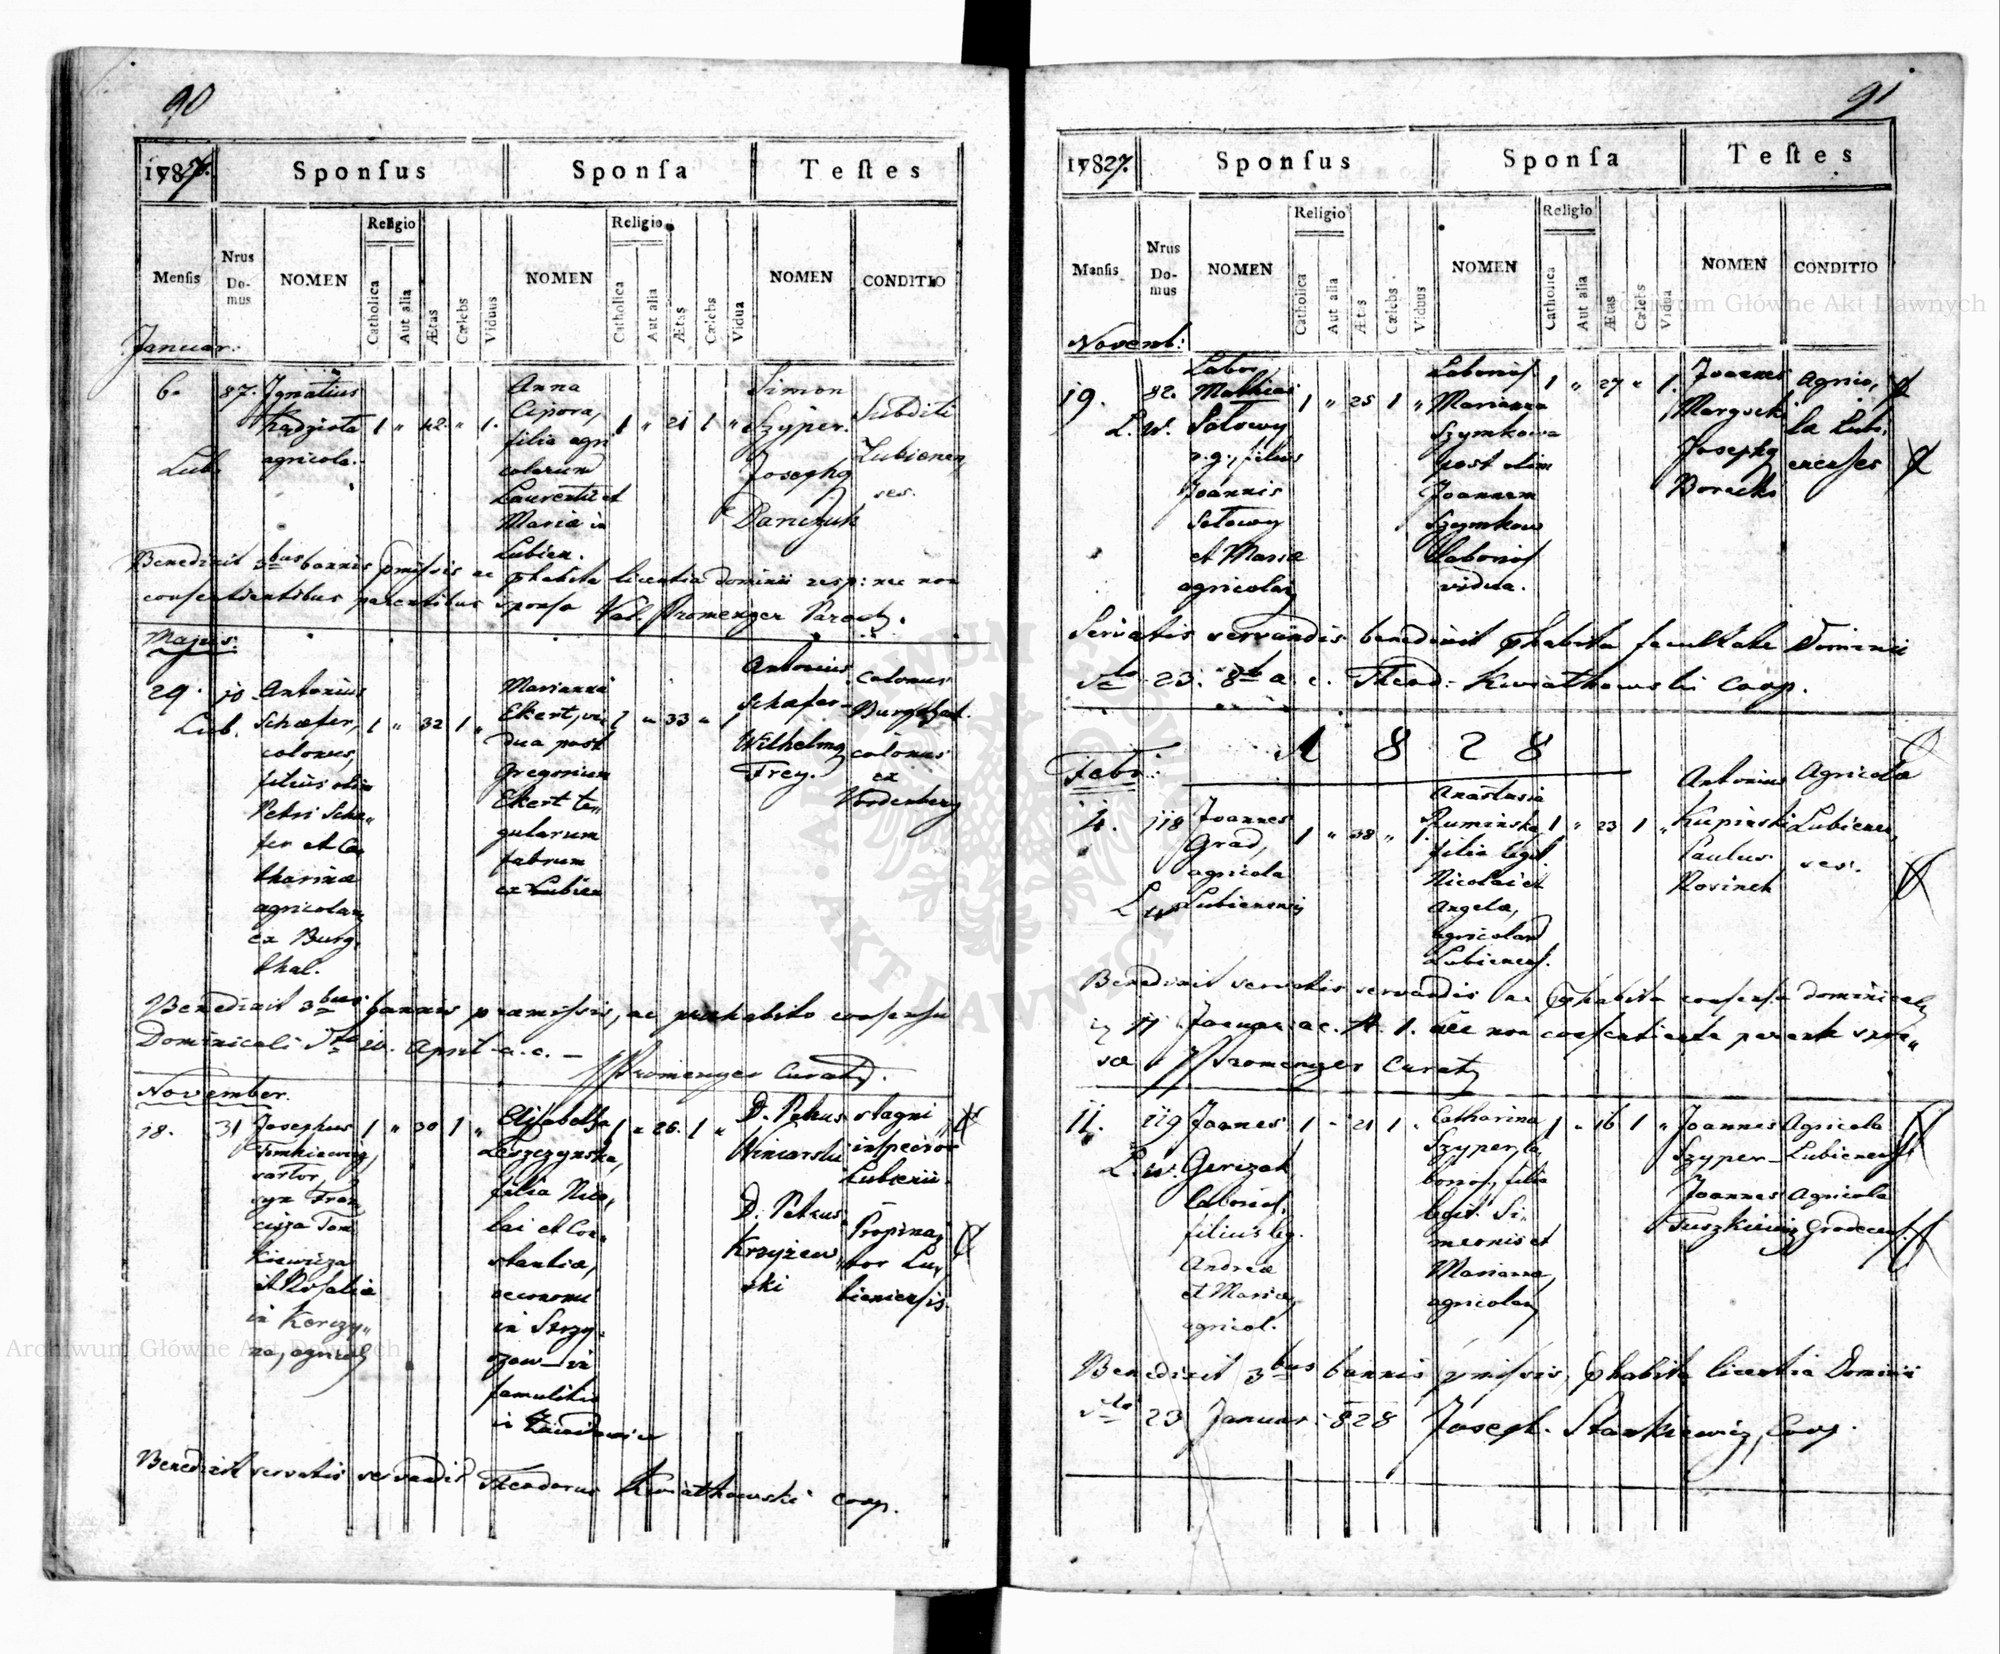 90
1787.
Sponſus
Sponſa
Teſtes
Menſis
Nrus Do-mus
NOMEN
Religio
Catholica
Aut alia
Ætas
Cælebs
Viduus
NOMEN
Religio
Catholica
Aut alia
Ætas
Cælebs
Vidua
NOMEN
CONDITIO
Januar:
6.
87.
Lub.
Ignatius
Kądziota
agricola.
1 " 42 " 1.
Anna
Cipora,
filia agri
colarum
Laurentii et
Maria in
Lubien.
1 " 21 1 "
Simon
Szyper.
Joseph
Danczuk
Subditi
Lubienen,
ses.
Benedixit 3bus bannis pmissis ac phabita licentia dominii resp: nec non
consentientibus parentibus sponsa Val. Promenger Paroch.
Majus:
29.
10
Lub.
Antonius
Schæfer,
colonus,
filius olim
Petri Schæ„
fer et Ca
tharinæ
agricolar
ex Burg,
thal.
1 " 32 1 "
Marianna
Ekert, vi„
dua post
Gregorium
Ekert te„
gularum
fabrum
ex Lubien
1 " 33 " 1
Antonius
Schæfer
Wilhelm
Frey.
colonus
Burgthal.
colonus
ex
Vordenberg
Benedixit 3bus bannis præmissis, ac præhabito consensu
Dominicali dto 20. April a. c. —
Promenger Curat.
November.
18.
31
Josephus
Tomkiewicz,
sartor,
syn Fran
cisza Tom
kiewicza
et Rosalia
in Korczy„
na, agricol
1 " 30 1 "
Elisabetha
Leszczynska,
filia Nico„
lai et Con„
stantiæ,
œconomi
in
famulitio
in
1 " 26. 1 "
D. Petrus
Winiarski
D. Petrus
Krzyżew„
ski
stagni
inspector
Lubienii.
Propina„
tor Lu„
bieniensis
Benedixit servatis servandis Theodorus Kwiatkowski coop.
91
17827.
Sponſus
Sponſa
Teſtes
Menſis
Nrus Do-mus
NOMEN
Religio
Catholica
Aut alia
Ætas
Cælebs
Viduus
NOMEN
Religio
Catholica
Aut alia
Ætas
Cælebs
Vidua
NOMEN
CONDITIO
Novemb:
19.
82.
L. W.
Labor,
Mathias
Sołowy
filius
Joannis
Sołowy
et Mariæ
agricolar
1 " 25 1 "
Laborios
Marianna
Szymkowa
post olim
Joannem
Szymkow
Laborios
vidua.
1 " 27 " 1.
Joannes
Joseph
Borecki
Agrico,
læ Lubi,
enenses
Servatis servandis benedixit phabita facultate Dominii
dto 23. 8b a. c. Theod: Kwiatkowski Coop.
1 8 2 8
Febr:
4.
118
L W
Joannes
Grad,
agricola
Lubienensis
1 " 38 " 1.
Anastasia
Ruminska
filia legit
Nicolai et
Angelæ,
agricolar
Lubienens.
1 " 23 1 "
Antonius
Kupinski
Paulus
Rosinek
Agricolæ
Lubienen,
ses.
Benedixit servatis servandis ac phabita consensu dominicali
11 Januar a c. nec non consentiente parente spon„
sæ Promenger Curat
11.
119
L. W.
Joanes
Gerizak
laborios,
filius leg.
Andreæ
et Mariæ
agricol.
1 " 21 1 "
Catharina
Szyper, la
borios, filia
legit. Si„
meonis et
Mariannæ,
agricolar
1 " 16 1 "
Joannes
Szyper—
Joannes
Tuszkiewicz
Agricola
Lubienens
Agricola
Grodecens.
Benedixit 3bus bannis pmissis, phabita licentia Dominii
dto 23 Januar: 828 Joseph. Stankiewicz, Coop.
Archiwum Główne Akt Dawnych
Archiwum Główne Akt Dawnych
ARCHIWUM GŁÓWNE AKT DAWNYCH